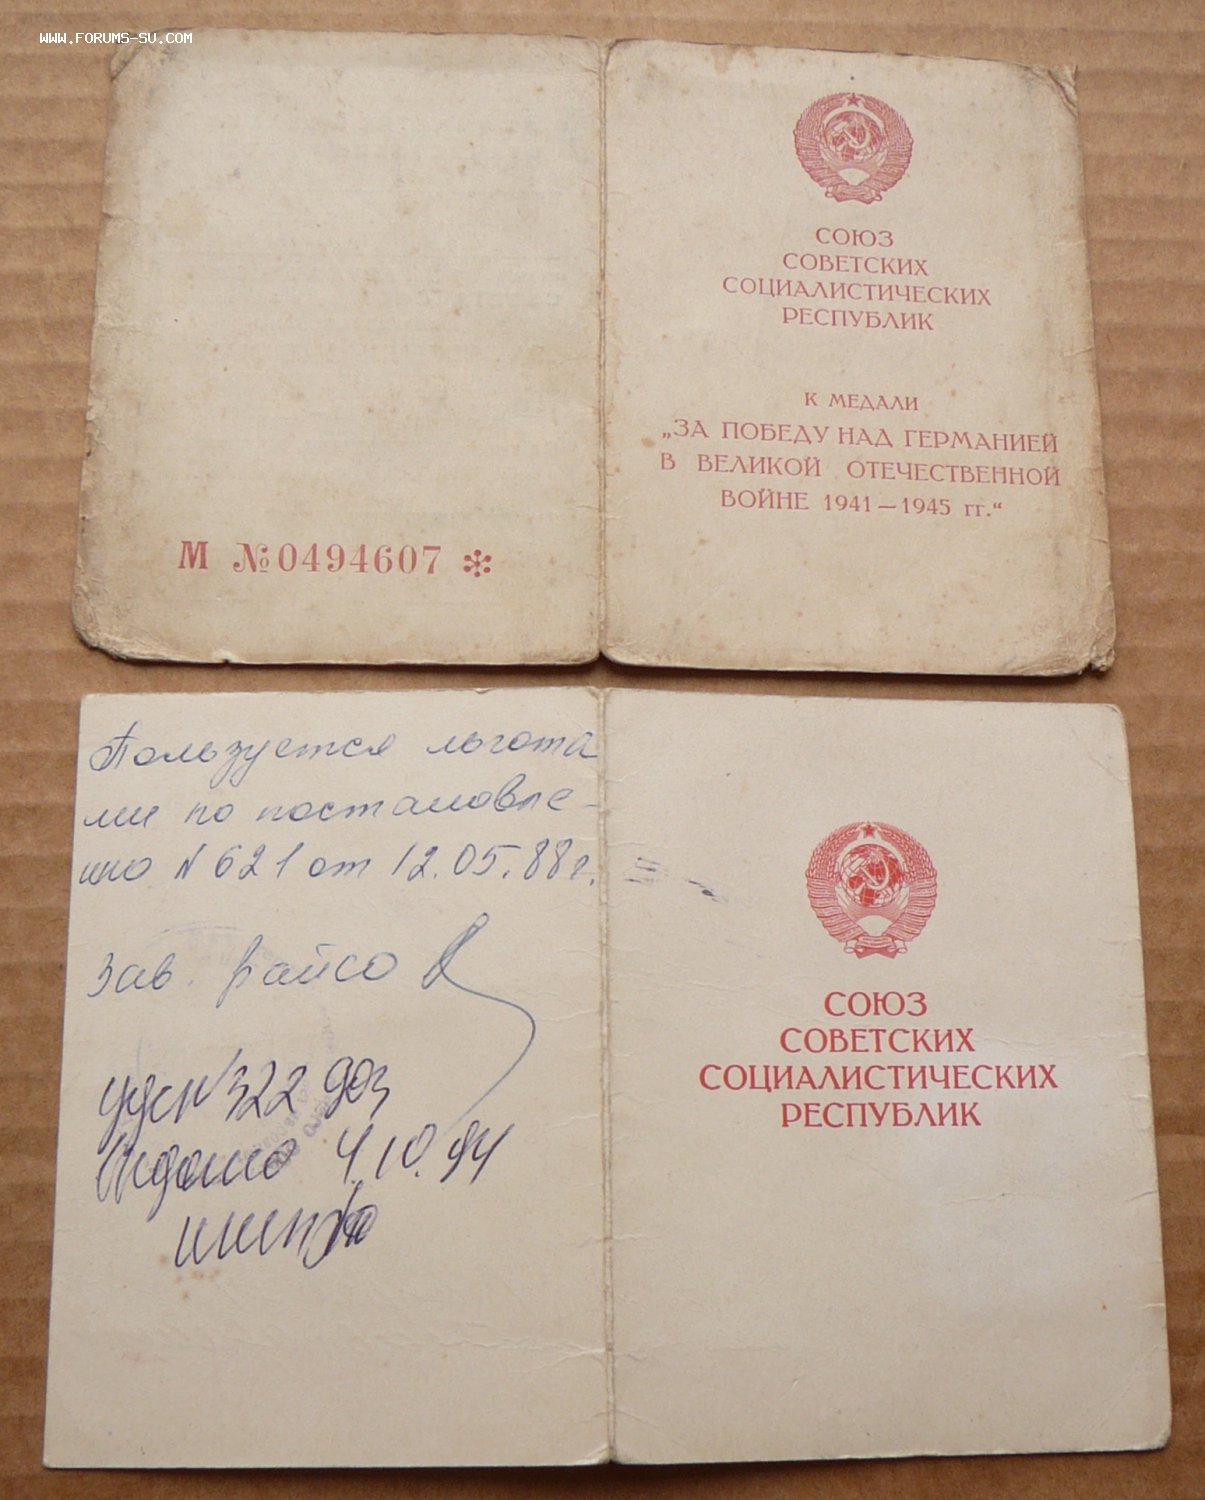 www.forums-su.com
СОЮЗ
СОВЕТСКИХ
СОЦИАЛИСТИЧЕСКИХ
РЕСПУБЛИК
К МЕДАЛИ
„ЗА ПОБЕДУ НАД ГЕРМАНИЕЙ
В ВЕЛИКОЙ ОТЕЧЕСТВЕННОЙ
ВОЙНЕ 1941—1945 гг.“
М №0494607 *
Пользуется льгота
ми по постановле-
нию N 621 от 12.05.88г.
Зав. райсо
уд N 322 903
Выдано 4.10.94
СОЮЗ
СОВЕТСКИХ
СОЦИАЛИСТИЧЕСКИХ
РЕСПУБЛИК